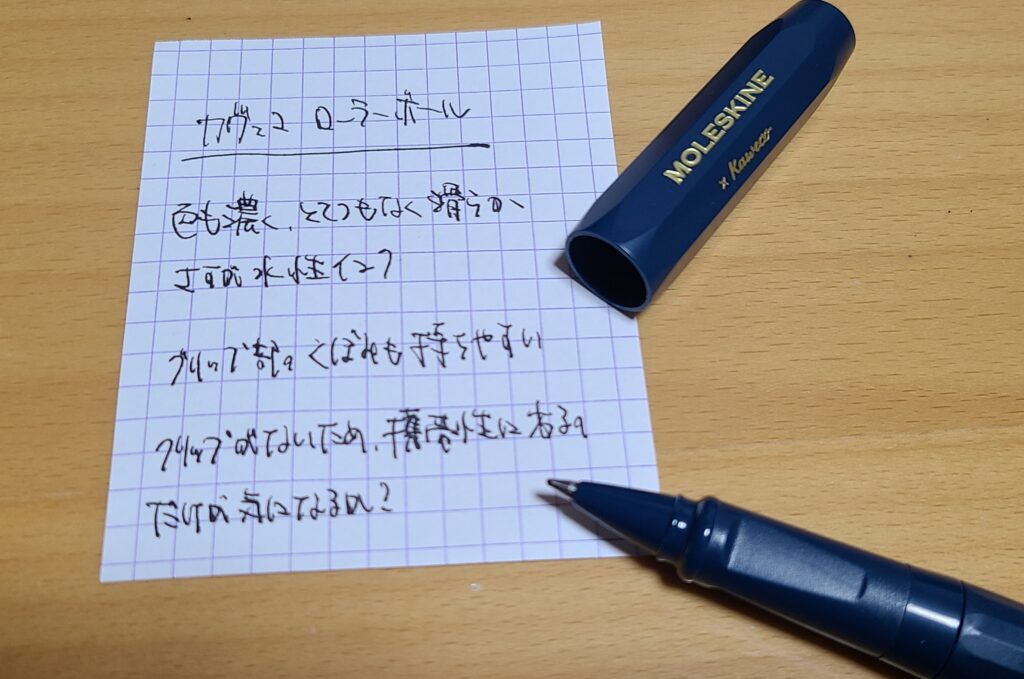 カヴェコ ローラーボール
色も濃く、とてつもなく滑らか
さすが水性インク
グリップ部のくぼみも持ちやすい
クリップがないため、携帯性に劣るの
だけが気になるか?
MOLESKINE
× Kaweco